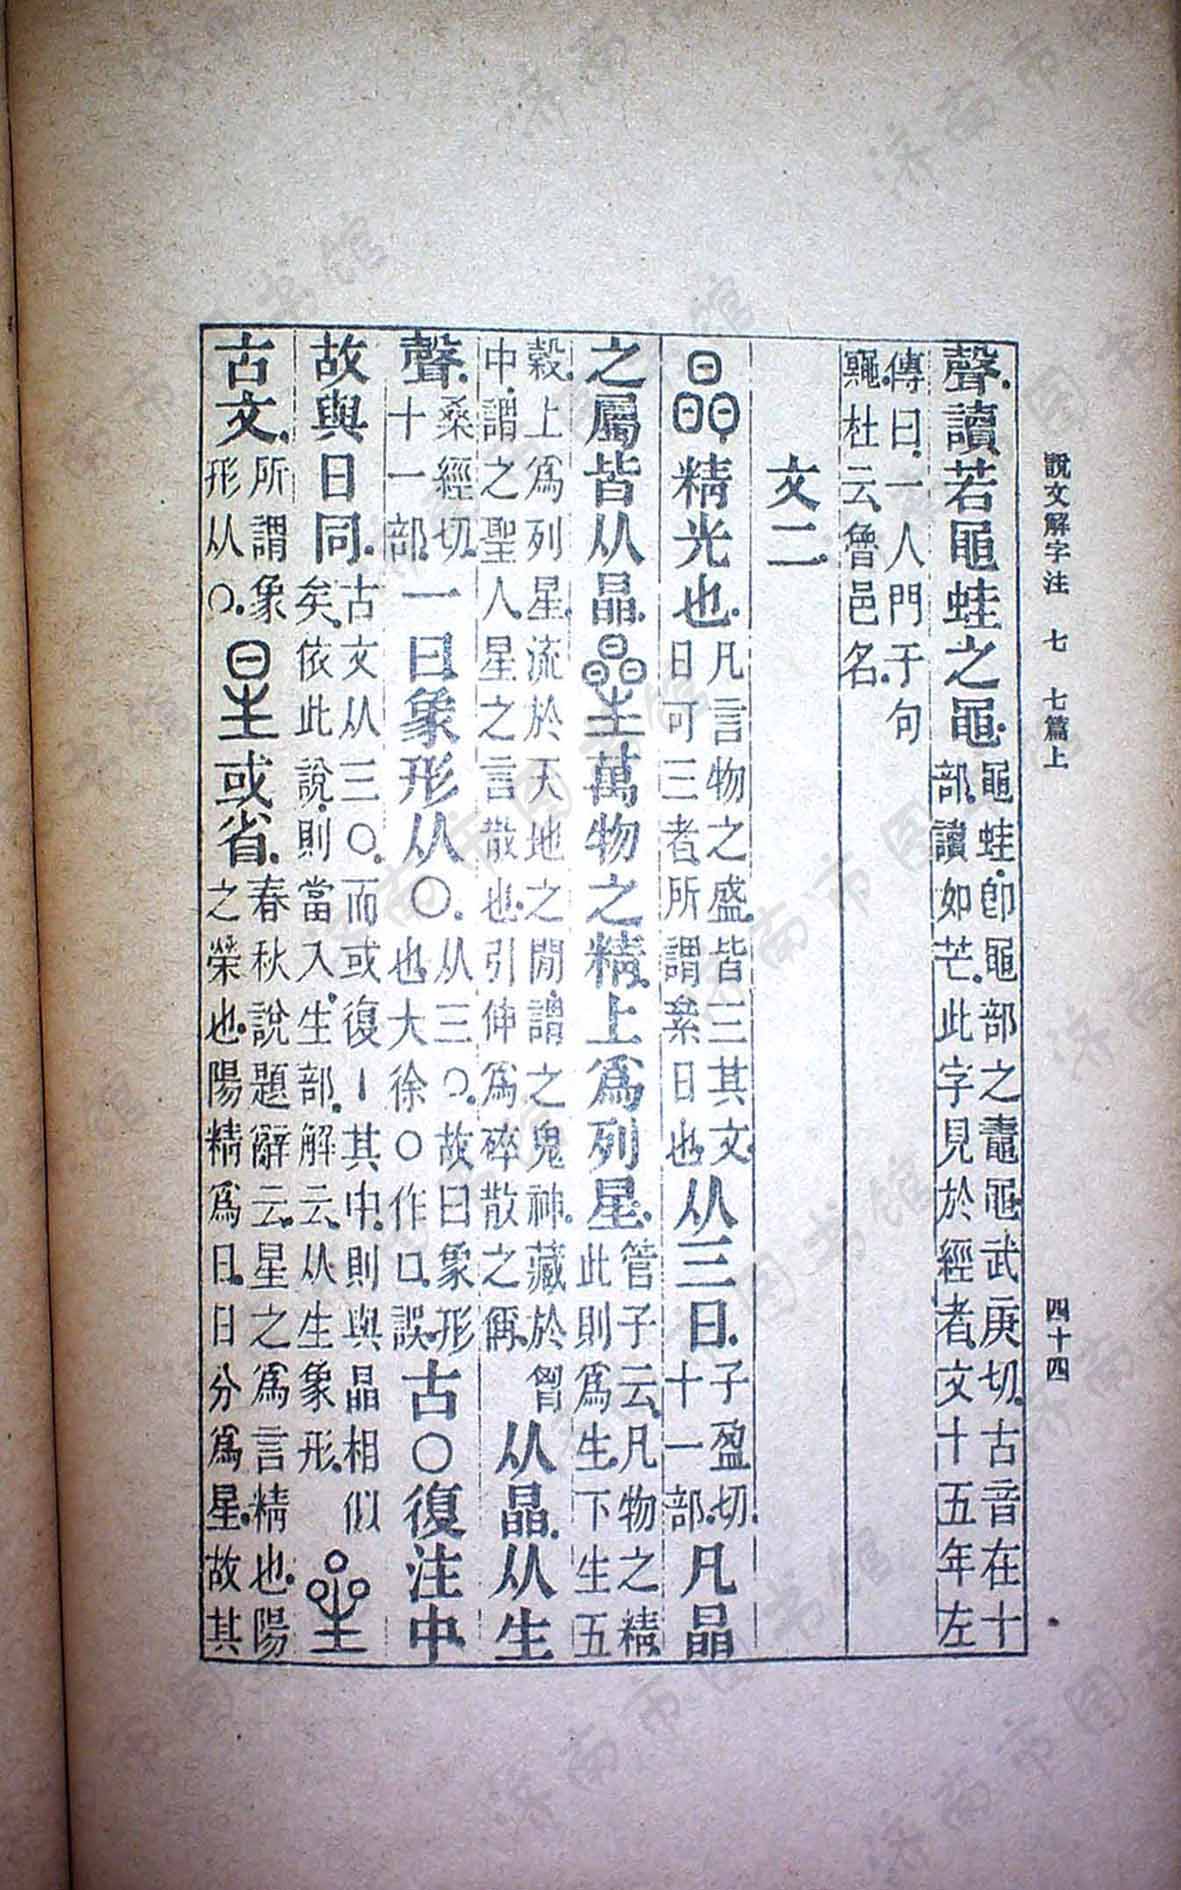 說文解字注 七 七篇上 四十四
聲。讀若黽蛙之黽。黽蛙卽黽部之鼃黽。武庚切。古音在十部。讀如芒。此字見於經者。文十五年左
傳曰。一人門于句鼆。杜云。魯邑名。
文二
晶精光也。凡言物之盛。皆三其文。日可三者。所謂絫日也。从三日。子盈切。十一部。凡晶
之屬皆从晶。曐萬物之精。上爲列星。管子云。凡物之精。此則爲生。下生五
穀。上爲列星。流於天地之閒。謂之鬼神。藏於胷中。謂之聖人。星之言散也。引伸爲碎散之偁。从晶。从生
聲。桑經切。十一部。一曰象形。从〇。从三〇。故曰象形也。大徐〇作口。誤。古〇復注中。
故與日同。古文从三〇。而或復丨其中。則與晶相似矣。依此說。則當入生部。解云。从生象形。
古文。所謂象形从〇。星或省。春秋說題辭云。星之爲言精也。陽之榮也。陽精爲日。日分爲星。故其
济南市图书馆